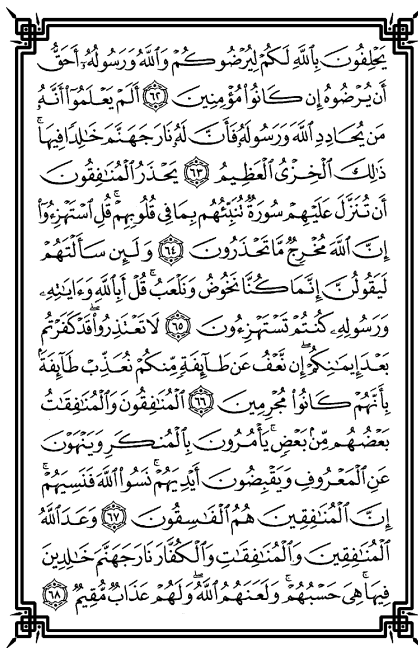 يَحْلِفُونَ بِٱللَّهِ لَكُمْ لِيُرْضُوكُمْ وَٱللَّهُ وَرَسُولُهُۥٓ أَحَقُّ
أَن يُرْضُوهُ إِن كَانُوا۟ مُؤْمِنِينَ ٦٢ أَلَمْ يَعْلَمُوٓا۟ أَنَّهُۥ
مَن يُحَادِدِ ٱللَّهَ وَرَسُولَهُۥ فَأَنَّ لَهُۥ نَارَ جَهَنَّمَ خَٰلِدًا فِيهَا ۚ
ذَٰلِكَ ٱلْخِزْىُ ٱلْعَظِيمُ ٦٣ يَحْذَرُ ٱلْمُنَٰفِقُونَ
أَن تُنَزَّلَ عَلَيْهِمْ سُورَةٌ تُنَبِّئُهُم بِمَا فِى قُلُوبِهِمْ ۚ قُلِ ٱسْتَهْزِءُوٓا۟
إِنَّ ٱللَّهَ مُخْرِجٌ مَّا تَحْذَرُونَ ٦٤ وَلَئِن سَأَلْتَهُمْ
لَيَقُولُنَّ إِنَّمَا كُنَّا نَخُوضُ وَنَلْعَبُ ۚ قُلْ أَبِٱللَّهِ وَءَايَٰتِهِۦ
وَرَسُولِهِۦ كُنتُمْ تَسْتَهْزِءُونَ ٦٥ لَا تَعْتَذِرُوا۟ قَدْ كَفَرْتُم
بَعْدَ إِيمَٰنِكُمْ ۚ إِن نَّعْفُ عَن طَآئِفَةٍ مِّنكُمْ نُعَذِّبْ طَآئِفَةًۢ
بِأَنَّهُمْ كَانُوا۟ مُجْرِمِينَ ٦٦ ٱلْمُنَٰفِقُونَ وَٱلْمُنَٰفِقَٰتُ
بَعْضُهُم مِّنۢ بَعْضٍ ۚ يَأْمُرُونَ بِٱلْمُنكَرِ وَيَنْهَوْنَ
عَنِ ٱلْمَعْرُوفِ وَيَقْبِضُونَ أَيْدِيَهُمْ ۚ نَسُوا۟ ٱللَّهَ فَنَسِيَهُمْ ۗ
إِنَّ ٱلْمُنَٰفِقِينَ هُمُ ٱلْفَٰسِقُونَ ٦٧ وَعَدَ ٱللَّهُ
ٱلْمُنَٰفِقِينَ وَٱلْمُنَٰفِقَٰتِ وَٱلْكُفَّارَ نَارَ جَهَنَّمَ خَٰلِدِينَ
فِيهَا ۚ هِىَ حَسْبُهُمْ ۚ وَلَعَنَهُمُ ٱللَّهُ ۖ وَلَهُمْ عَذَابٌ مُّقِيمٌ ٦٨